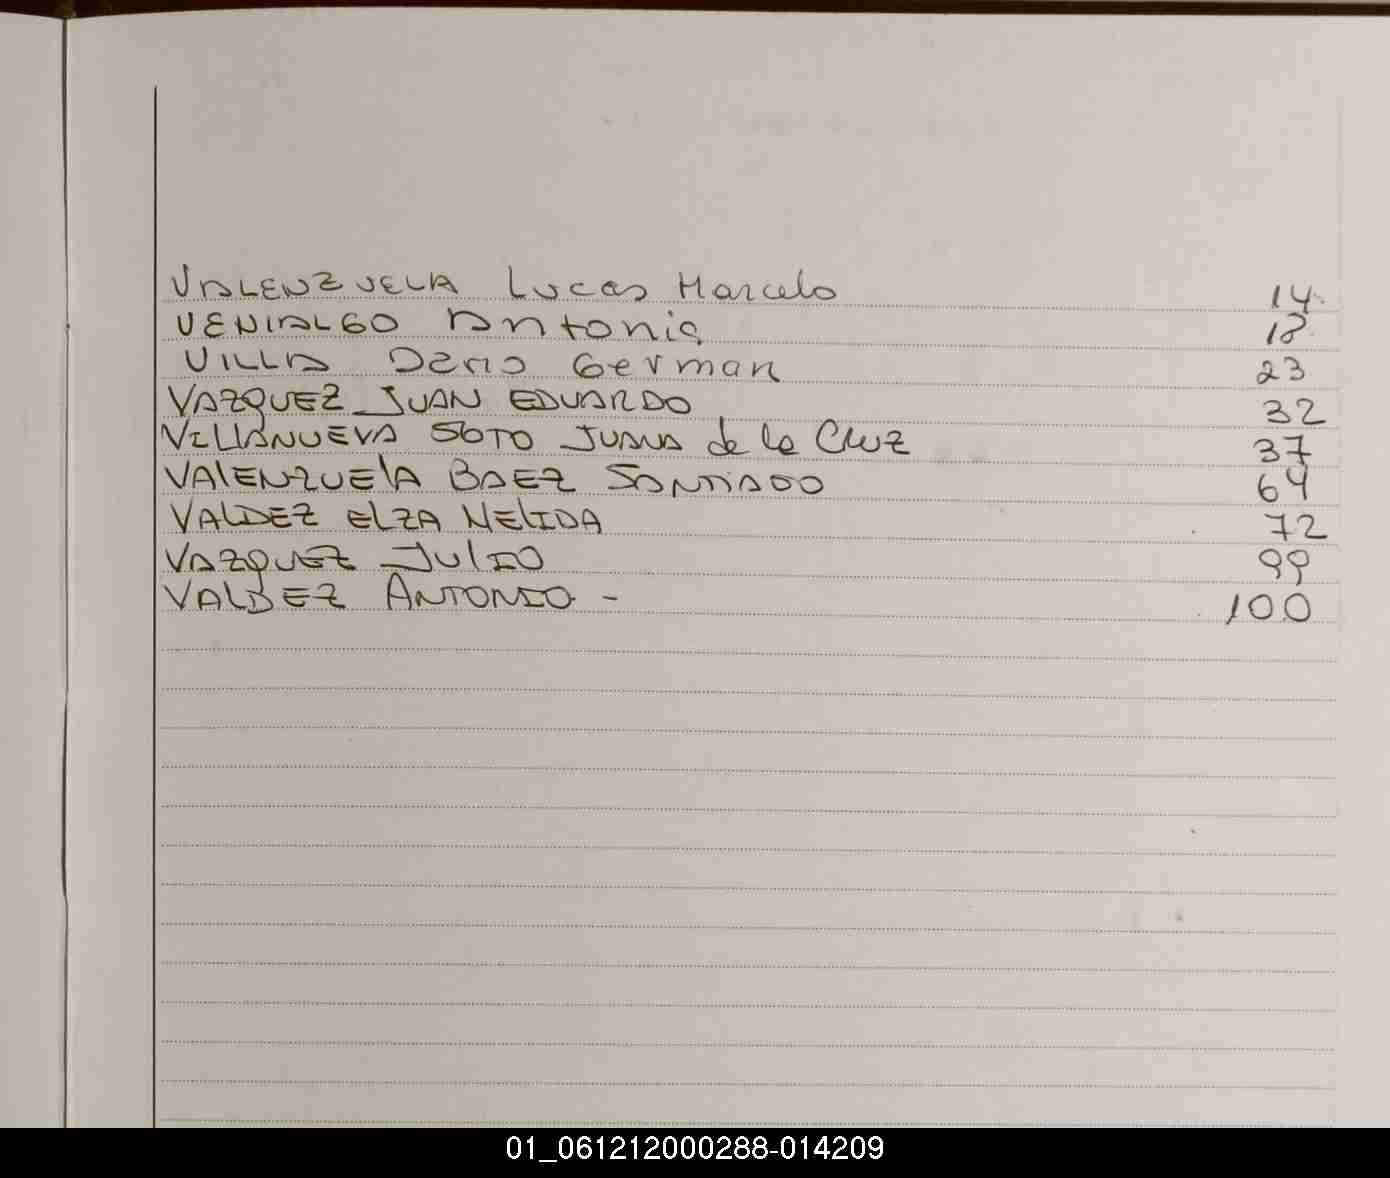 VALENZUELA Lucas Marcelo 14
VENIALGO Antonia 18
VILLA Dario German 23
VAZQUEZ JUAN EDUARDO 32
VILLANUEVA SOTO JUANA de la Cruz 37
VAlENZUElA BAEZ SANTIAGO 64
VALDEZ ELZA NElIDA 72
VAZQUEZ JUlIO 99
VALDEZ ANTONIO - 100
01_061212000288-014209